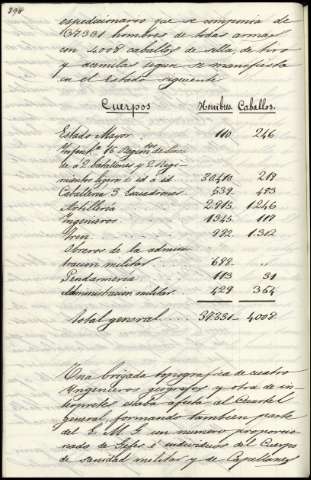 298
espedicionario que se componia de
37331 hombres de todas armas
con 4,008 caballos de silla, de tiro
y acemilas segun se manifiesta
en el Estado siguiente
Cuerpos Hombres. Caballos.
Estado Mayor 110. 246
Infanta 15 Regimtos de linea
a 2 batallones y 2 Regi-
mientos ligero id a id. 30,410. 219
Caballeria 3 Escuadrones 539. 473
Artilleria 2,913. 1,246
Ingenieros 1345. 117
Tren 992. 1,312
Obreros de la adminis
tracion militar 688. "
Gendarmeria 113 31
Administracion militar 429 364
Total general 37331 4008
Una brigada topografica de cuatro
Ingenieros geografos y otra de in-
terpretes estaba afecta al Cuartel
general, formando tambien parte
del E. M. G. un numero proporcio
nado de Gefes é individuos del Cuerpo
de Sanidad militar y de Capellanes